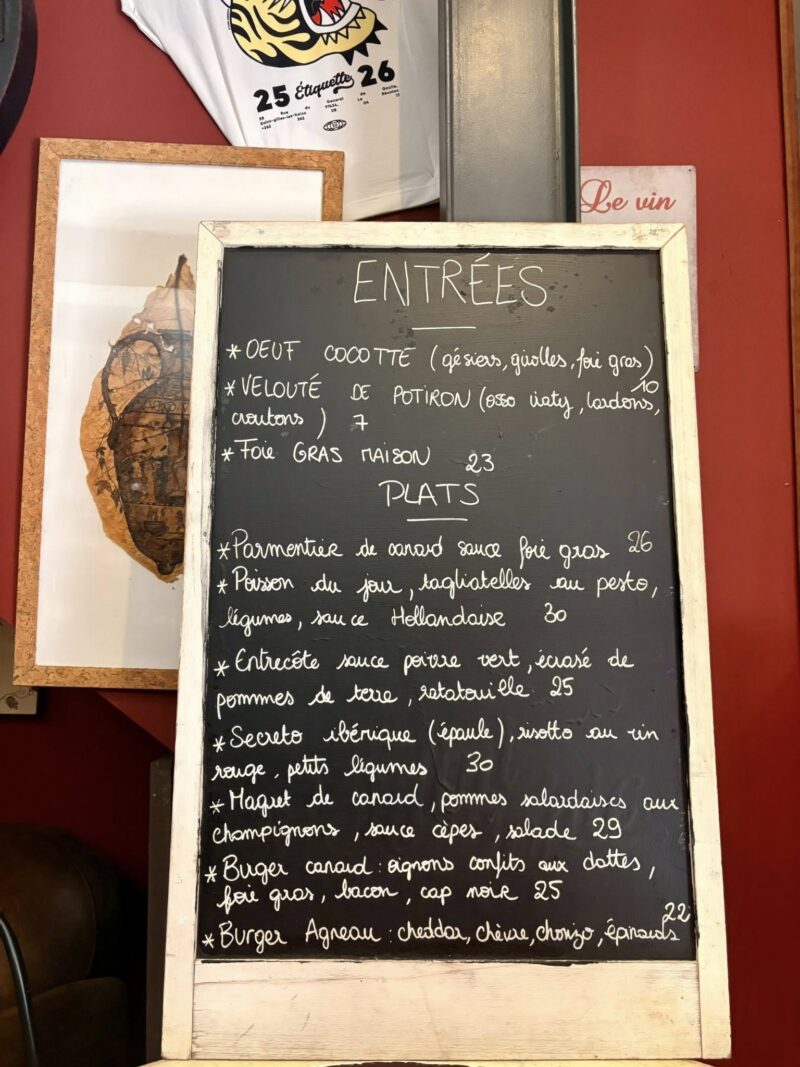 25 Étiquette 26
Le vin
ENTRÉES
* OEUF COCOTTE (gésiers, girolles, foie gras)
10
* VELOUTÉ DE POTIRON (osso iraty, lardons,
croutons) 7
* Foie GRAS MAISON 23
PLATS
* Parmentier de canard sauce foie gras 26
* Poisson du jour, tagliatelles au pesto,
légumes, sauce Hollandaise 30
* Entrecôte sauce poivre vert, écrasé de
pommes de terre, ratatouille 25
* Secreto ibérique (épaule), risotto au vin
rouge, petits légumes 30
* Magret de canard, pommes salardaises aux
champignons, sauce cèpes, salade 29
* Burger canard : oignons confits aux dattes,
foie gras, bacon, cap noir 25
22
* Burger Agneau : cheddar, chèvre, chorizo, épinards